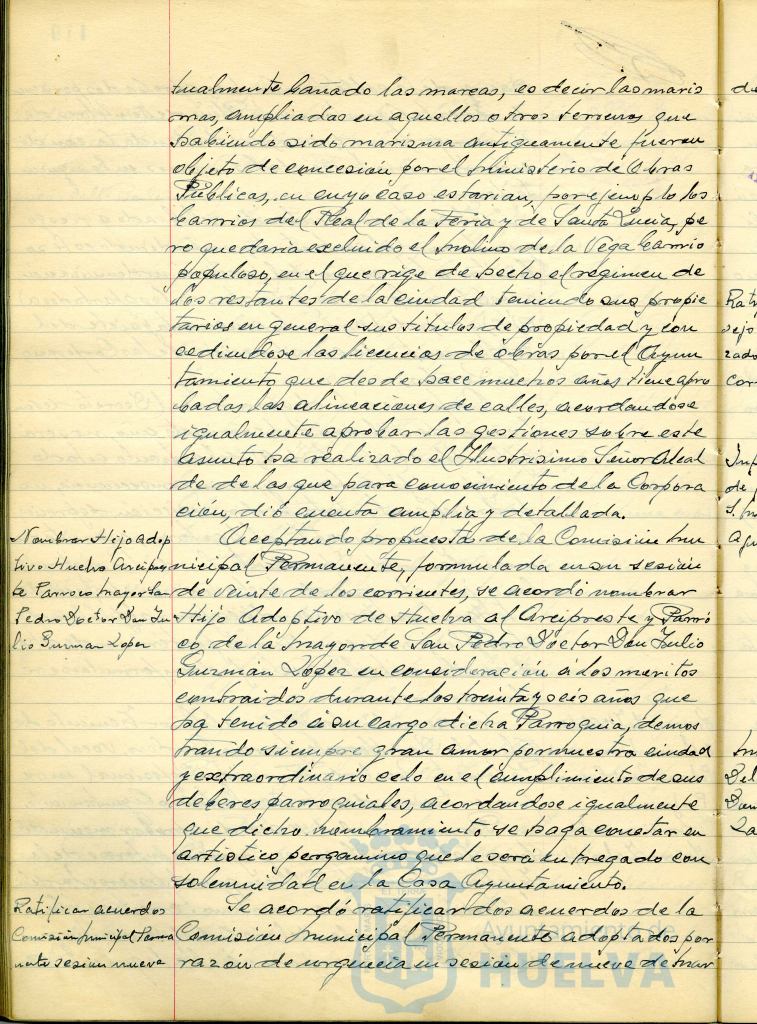 tualmente bañado las mareas, es decir las maris
mas, ampliadas en aquellos otros terrenos que
habiendo sido marisma antiguamente fueran
objeto de concesión por el Ministerio de Obras
Públicas, en cuyo caso estarian, por ejemplo los
barrios del Real de la Feria y de Santa Lucia, pe
ro quedaria excluido el Molino de la Vega barrio
populoso, en el que rige de hecho el regimen de
los restantes de la ciudad teniendo sus propie
tarios en general sus titulos de propiedad y con
cediendose las licencias de obras por el Ayun
tamiento que desde hace muchos años tiene apro
badas las alineaciones de calles, acordandose
igualmente aprobar las gestiones sobre este
asunto ha realizado el Ilustrisimo Señor Alcal
de de las que para conocimiento de la Corpora
ción, dió cuenta amplia y detallada.
Nombrar Hijo Adop
tivo Huelva Arcipres
te Parroco Mayor San
Pedro Doctor Don Ju
lio Guzman Lopez
Aceptando propuesta de la Comisión Mu
nicipal Permanente, formulada en su sesión
de veinte de los corrientes, se acordó nombrar
Hijo Adoptivo de Huelva al Arcipreste y Parro
co de la Mayor de San Pedro Doctor Don Julio
Guzmán López en consideración á los meritos
contraidos durante los treinta y seis años que
ha tenido á su cargo dicha Parroquia, demos
trando siempre gran amor por nuestra ciudad
y extraordinario celo en el cumplimiento de sus
deberes parroquiales, acordandose igualmente
que dicho nombramiento se haga constar en
artistico pergamino que le será entregado con
solemnidad en la Casa Ayuntamiento.
Ratificar acuerdos
Comisión Municipal Perma
nente sesion nueve
Se acordó ratificar los acuerdos de la
Comisión Municipal Permanente adoptados por
razón de urgencia en sesión de nueve de Mar
Ayuntamiento de
HUELVA